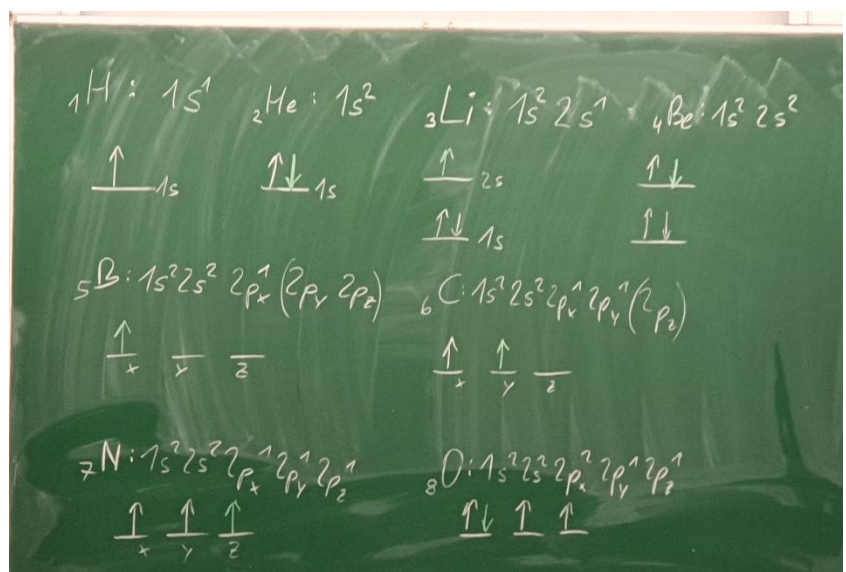 ₁H: 1s¹ ₂He: 1s² ₃Li: 1s² 2s¹ ₄Be: 1s² 2s²
↑ 1s ↑↓ 1s ↑ 2s ↑↓
↑↓ 1s ↑↓
₅B: 1s² 2s² 2pₓ¹ (2p_y 2p_z) ₆C: 1s² 2s² 2pₓ¹ 2p_y¹ (2p_z)
↑ x y z ↑ x ↑ y z
₇N: 1s² 2s² 2pₓ¹ 2p_y¹ 2p_z¹ ₈O: 1s² 2s² 2pₓ² 2p_y¹ 2p_z¹
↑ x ↑ y ↑ z ↑↓ ↑ ↑